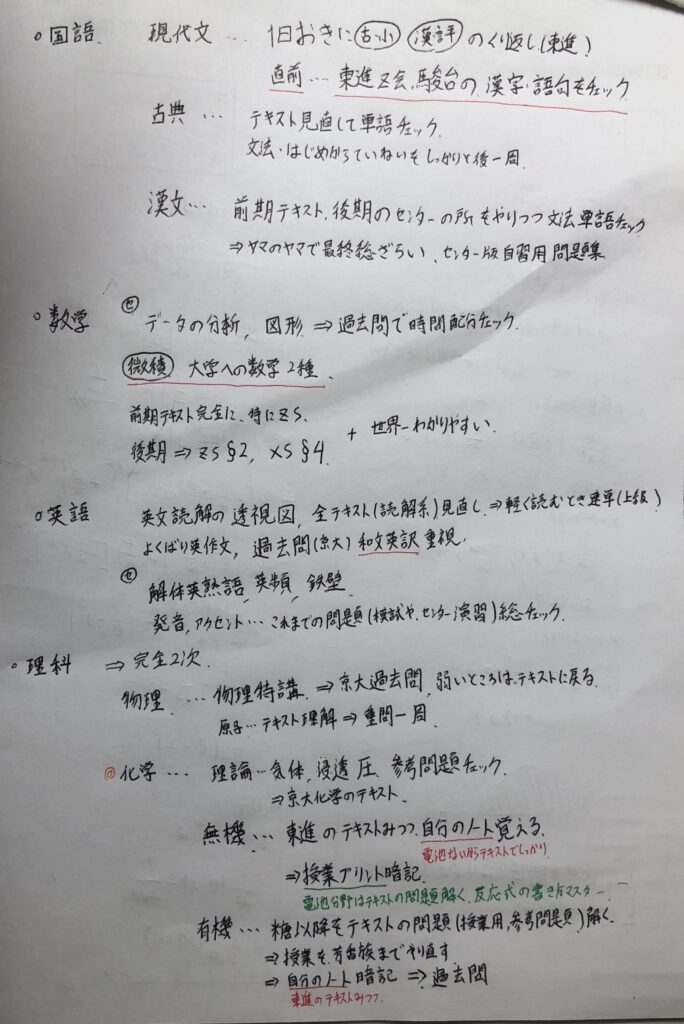 ○国語 現代文 … 1日おきに古・小 漢評のくり返し(東進)
直前 … 東進Z会、駿台の漢字・語句をチェック
古典 … テキスト見直して単語チェック.
文法・はじめからていねいをしっかりと後一周.
漢文 … 前期テキスト、後期のセンターの所をやりつつ文法単語チェック
⇒ヤマのヤマで最終総ざらい、センター版自習用問題集
○数学 セ データの分析, 図形 ⇒ 過去問で時間配分チェック.
微積 大学への数学2種.
前期テキスト完全に、特にZS.
後期 ⇒ ZS §2, XS §4. + 世界一わかりやすい.
○英語 英文読解の透視図, 全テキスト(読解系)見直し. ⇒ 軽く読むとき速単(上級)
よくばり英作文, 過去問(京大) 和文英訳重視.
セ 解体英熟語, 英頻, 鉄壁
発音, アクセント … これまでの問題(模試や、センター演習)総チェック.
○理科 ⇒ 完全2次.
物理 … 物理特講 ⇒ 京大過去問, 弱いところはテキストに戻る.
原子 … テキスト理解 ⇒ 重問一周.
◎化学 … 理論 … 気体, 浸透圧 参考問題チェック.
⇒京大化学のテキスト.
無機 … 東進のテキストみつつ自分のノート覚える.
電池ないからテキストでしっかり.
⇒授業プリント暗記.
電池分野はテキストの問題解く. 反応式の書き方マスター.
有機 … 糖以降をテキストの問題(授業用, 参考問題)解く.
⇒授業を芳香族までやり直す
⇒自分のノート暗記 ⇒ 過去問
東進のテキストみつつ.